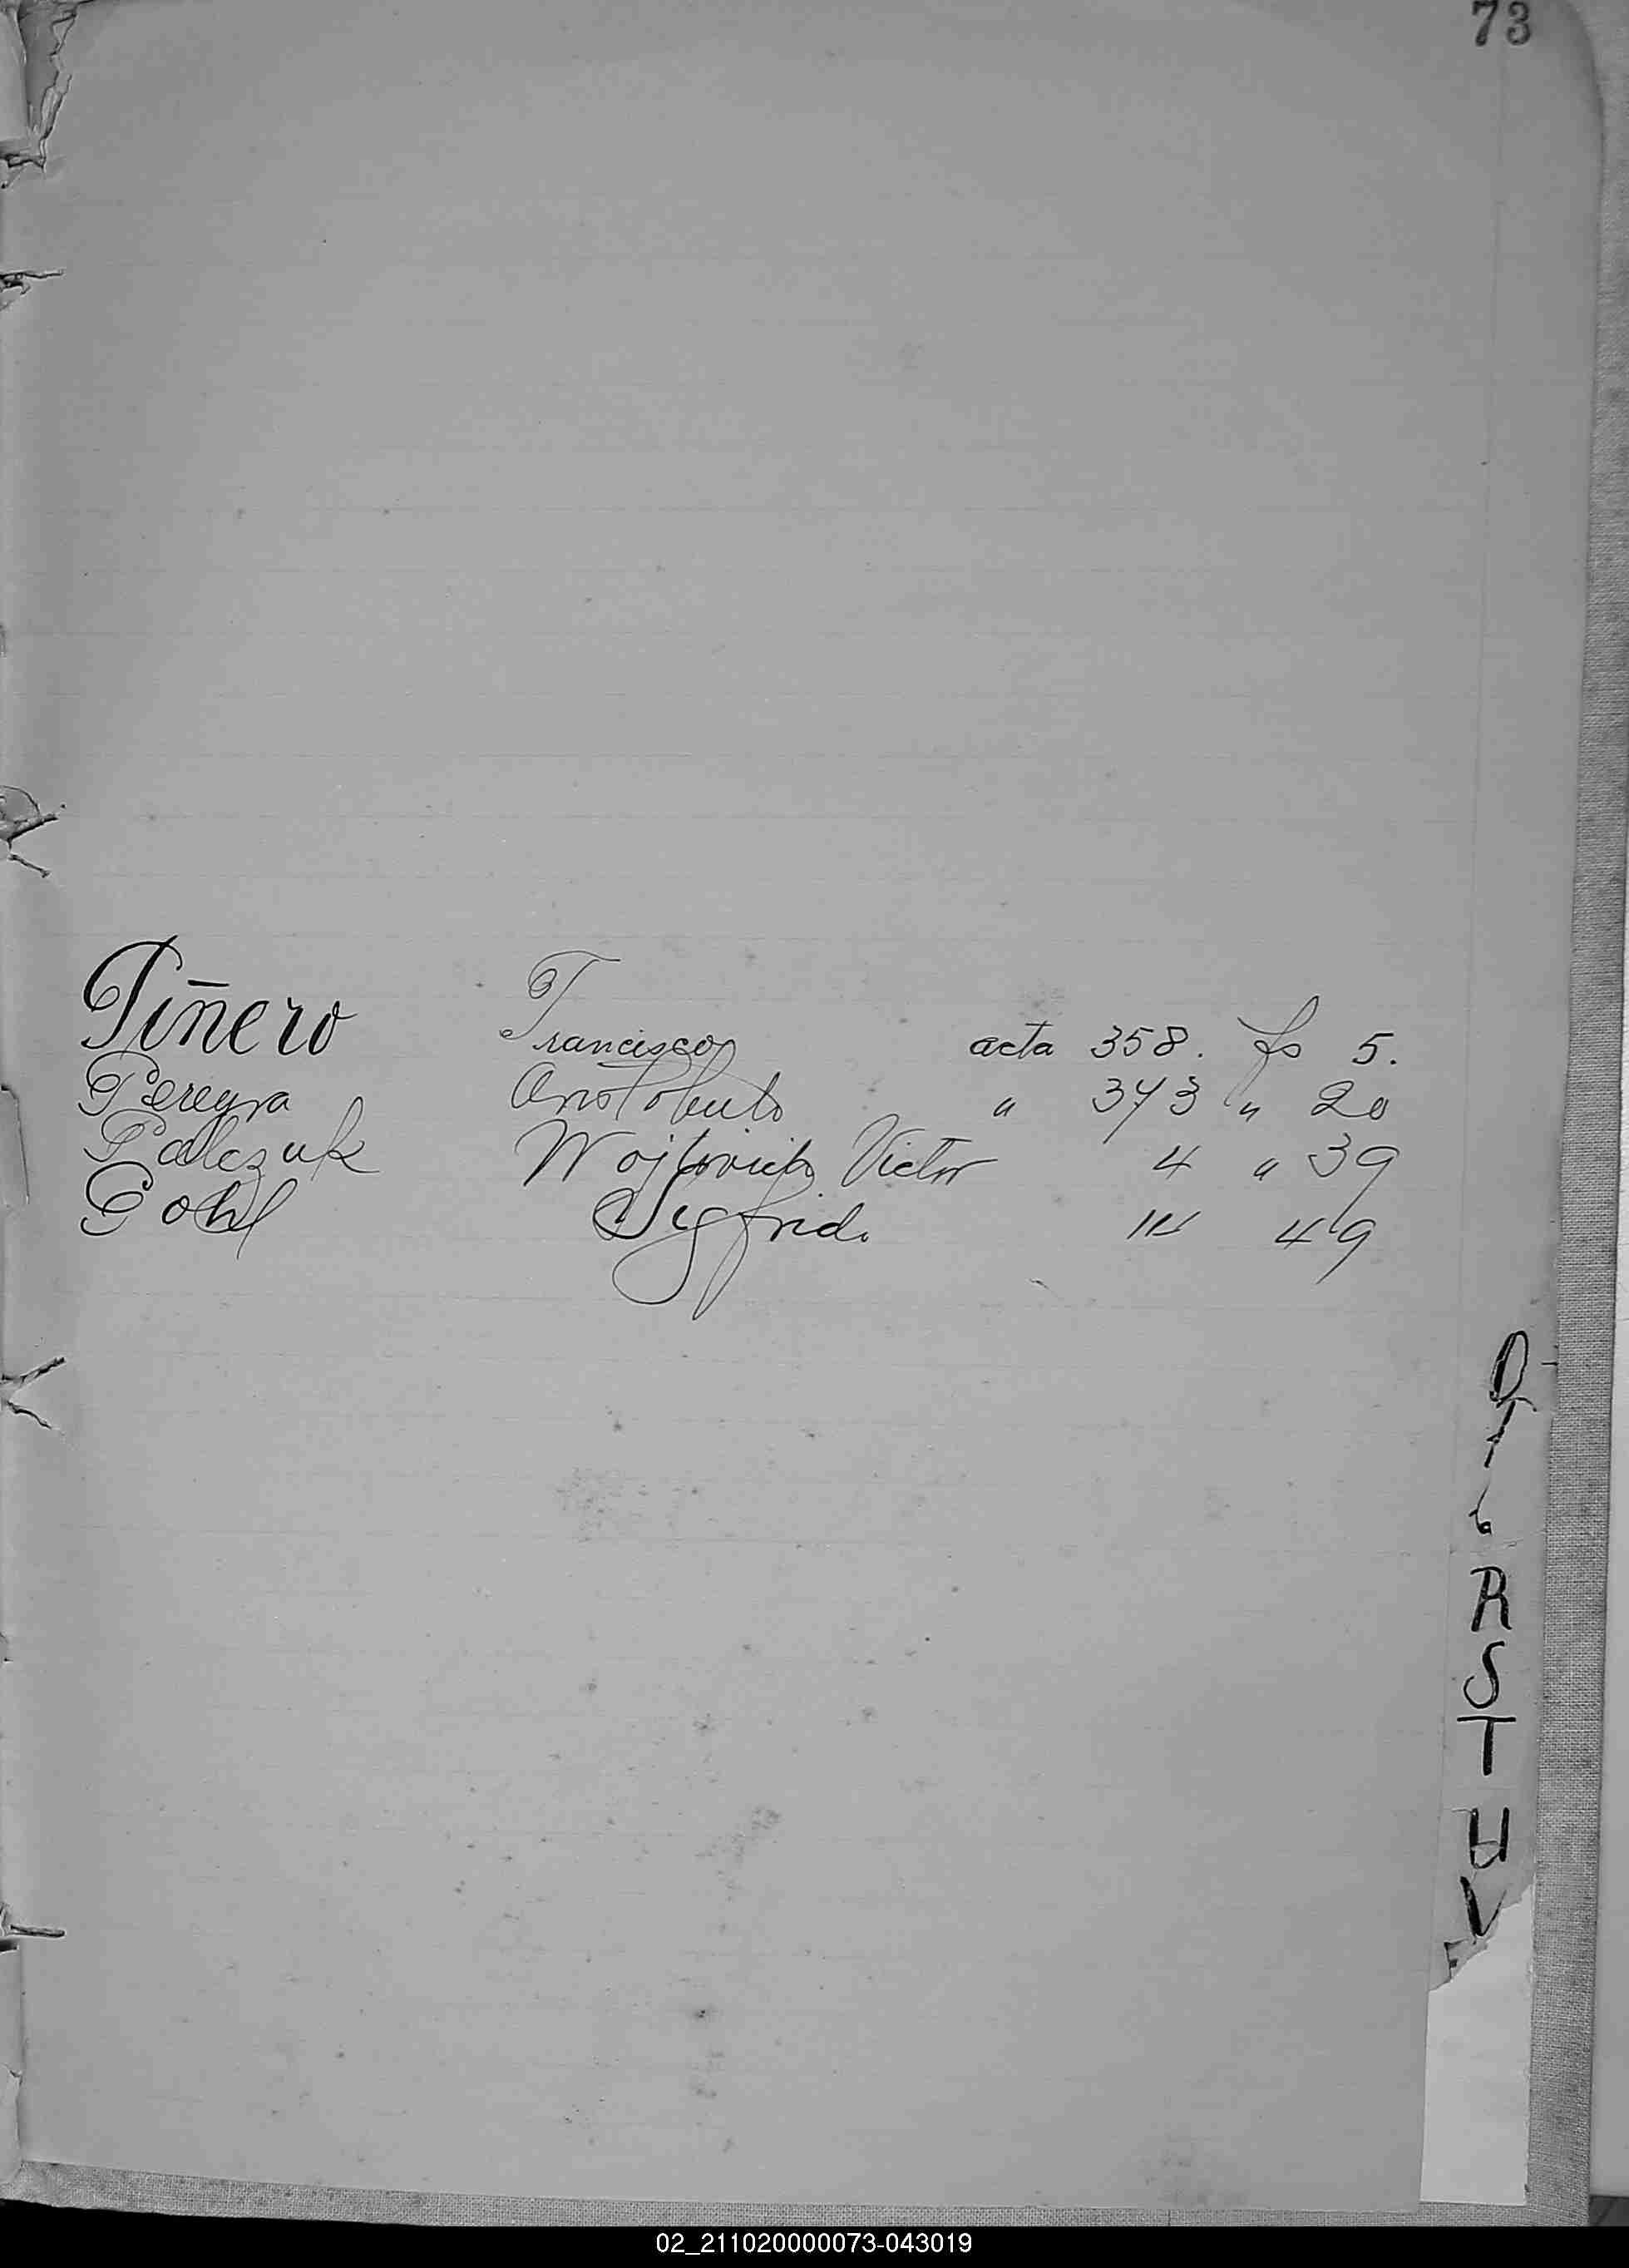 73
Piñero Francisco acta 358. fo 5.
Pereyra Aristobulo " 373 " 20
Palczuk Wojtovich Victor 4 " 39
Pohl Sigfrid. 14 49
R
S
T
U
V
02_211020000073-043019